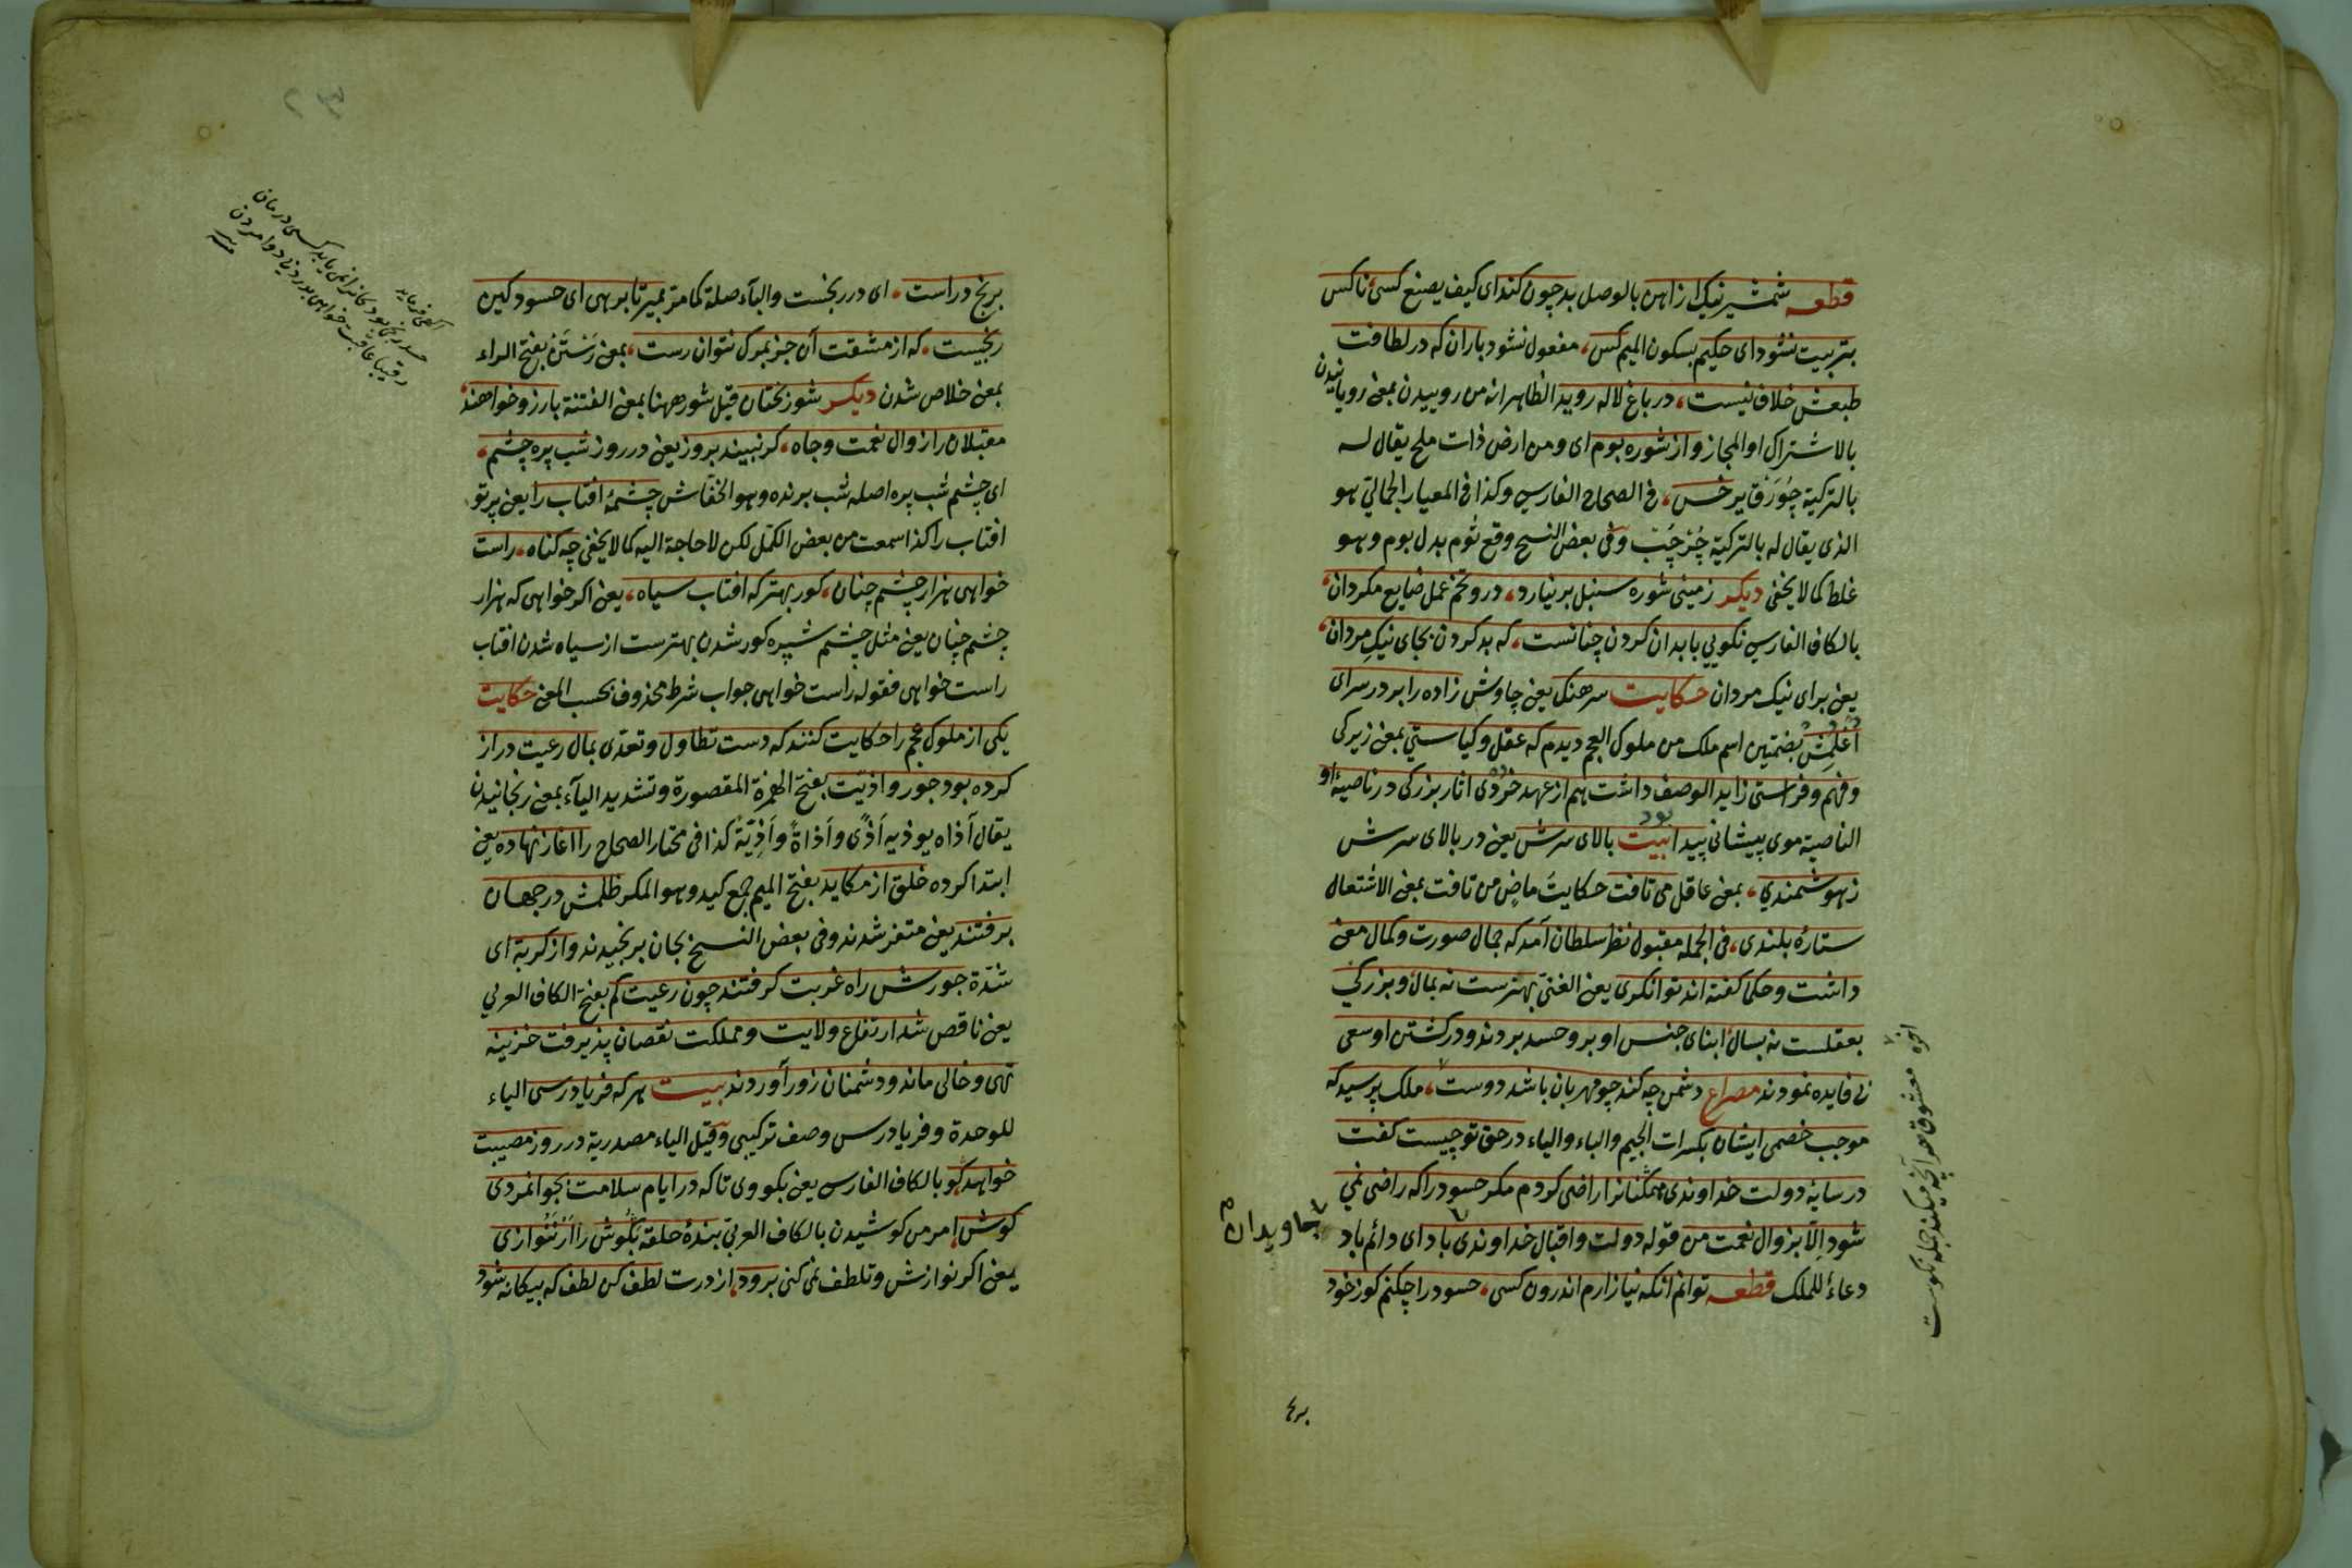 قطعه شمشیر نیک از اهن بالوصل بد چون کند ای کیف یصنع کسی ناکس
بتربیت نشود ای حکیم بسکون المیم کس، مفعول نشود باران که در لطافت
طبعش خلاف نیست، در باغ لاله روید الظاهر انه من روییدن بمعنی رویانیدن
بالاشتراک او المجاز و از شوره بوم ای ومن ارض ذات ملح یقال له
بالترکیة چورق یر خس، فی الصحاح الفارسی وکذا فی المعیار الجمالی هو
الذی یقال له بالترکیة چرچپ وفی بعض النسخ وقع ثوم بدل بوم وهو
غلط کما لا یخفی دیکر زمین شوره سنبل بر نیارد، درو تخم عمل ضایع مکردان،
بالکاف الفارسی نکویی با بدان کردن چنانست، که بد کردن بجای نیک مردان،
یعنی برای نیک مردان حکایت سرهنک یعنی چاوش زاده را بر در سرای
اغلمش بضمتین اسم ملک من ملوک العجم دیدم که عقل و کیاستی بمعنی زیرکی
و فهم و فراستی زاید الوصف داشت هم از عهد خردی اثار بزرکی در ناصیهٔ او
الناصیة موی پیشانی پیدا بود بیت بالای سرش یعنی در بالای سرش
زهوشمندی، بمعنی عاقل می تافت حکایت ماض من تافت بمعنی الاشتعال
ستارهٔ بلندی، فی الجمله مقبول نظر سلطان آمد که جمال صورت و کمال معنی
داشت و حکما کفته اند توانکری یعنی الغنی بهنرست نه بمال و بزرکی
بعقلست نه بسال ابنای جنس او برو حسد بردند و در کشتن او سعی
بی فایده نمودند مصراع دشمن چه کند چو مهربان باشد دوست، ملک پرسید که
موجب خصمی ایشان بکسرات الجیم والباء والیاء در حق تو چیست کفت
در سایهٔ دولت خداوندی همکنانرا راضی کردم مکر حسود را که راضی نمی
شود الا بزوال نعمت من قوله دولت و اقبال خداوندی باد ای دائم باد
دعاء للملک قطعه توانم انکه نیازارم اندرون کسی، حسود را چکنم کو ز خود
بجاویدان
معشوق هر آنچه میکند جمله نکوست
برنج
برنج دراست، ای در رنجست والباء صلة کما مر بمیر تا برهی ای حسود کین
رنجیست، که از مشقت آن جز بمرک نتوان رست، بمعنی رستن بفتح الراء
بمعنی خلاص شدن دیکر شور بختان قیل شور ههنا بمعنی الفتنة بارزو خواهند،
مقبلان را زوال نعمت و جاه، کر نبیند بروز یعنی در روز شب پره چشم،
ای چشم شب پره اصله شب پرنده وهو الخفاش چشمهٔ افتاب را یعنی پرتو
افتاب را کذا سمعت من بعض الکمل لکن لا حاجة الیه کما لا یخفی چه کناه، راست
خواهی هزار چشم چنان، کور بهتر که افتاب سیاه، یعنی اکر خواهی که هزار
چشم چنان یعنی مثل چشم شپره کور شدن بهترست از سیاه شدن افتاب
راست خواهی فقوله راست خواهی جواب شرط محذوف بحسب المعنی حکایت
یکی از ملوک عجم را حکایت کنند که دست تطاول و تعدی بمال رعیت دراز
کرده بود جور و اذیت بفتح الهمزة المقصورة وتشدید الیاء بمعنی رنجانیدن
یقال آذاه یوذیه اذی و اذاة و اذیة کذا فی مختار الصحاح را اغاز نهاده یعنی
ابتدا کرده خلق از مکاید بفتح المیم جمع کید وهو المکر ظلمش در جهان
برفتند یعنی متفرّ شدند وفی بعض النسخ بجان برنجیدند و از کربة ای
شدة جورش راه غربت کرفتند چون رعیت کم بفتح الکاف العربی
یعنی ناقص شد ارتفاع ولایت و مملکت نقصان پذیرفت خزینه
تهی و خالی ماند و دشمنان زور آوردند بیت هر که فریادرسی الیاء
للوحدة و فریادرس وصف ترکیبی وقیل الیاء مصدریة در روز مصیبت
خواهد کو بالکاف الفارسی یعنی بکو وی تا که در ایام سلامت بجوانمردی
کوش، امر من کوشیدن بالکاف العربی بندهٔ حلقه بکوش را ار ننوازی
یعنی اکر نوازش و تلطف نمی کنی برود، از درت لطف کن لطف که بیکانه شود